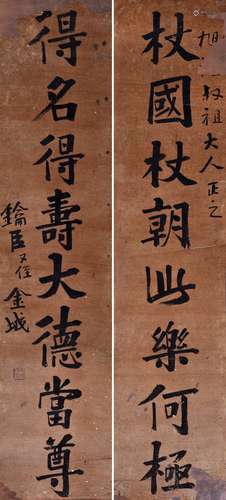 杖國杖朝此樂何極
叔祖大人正之
得名得壽大德當尊
又侄金城